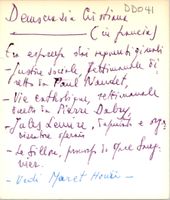 Democrazia Cristiana DD041
(in Francia)
Era espressa dai seguenti giornali
- Justice sociale, settimanale di
retto da Paul Naudet
- Vie catholique, settimanale
diretto da Pierre Dabry
- Jules Lemire, deputato e orga
nizzatore operaio
- Le Sillon, promosso da Marc Sang
nier.
- Vedi Maret Henri -